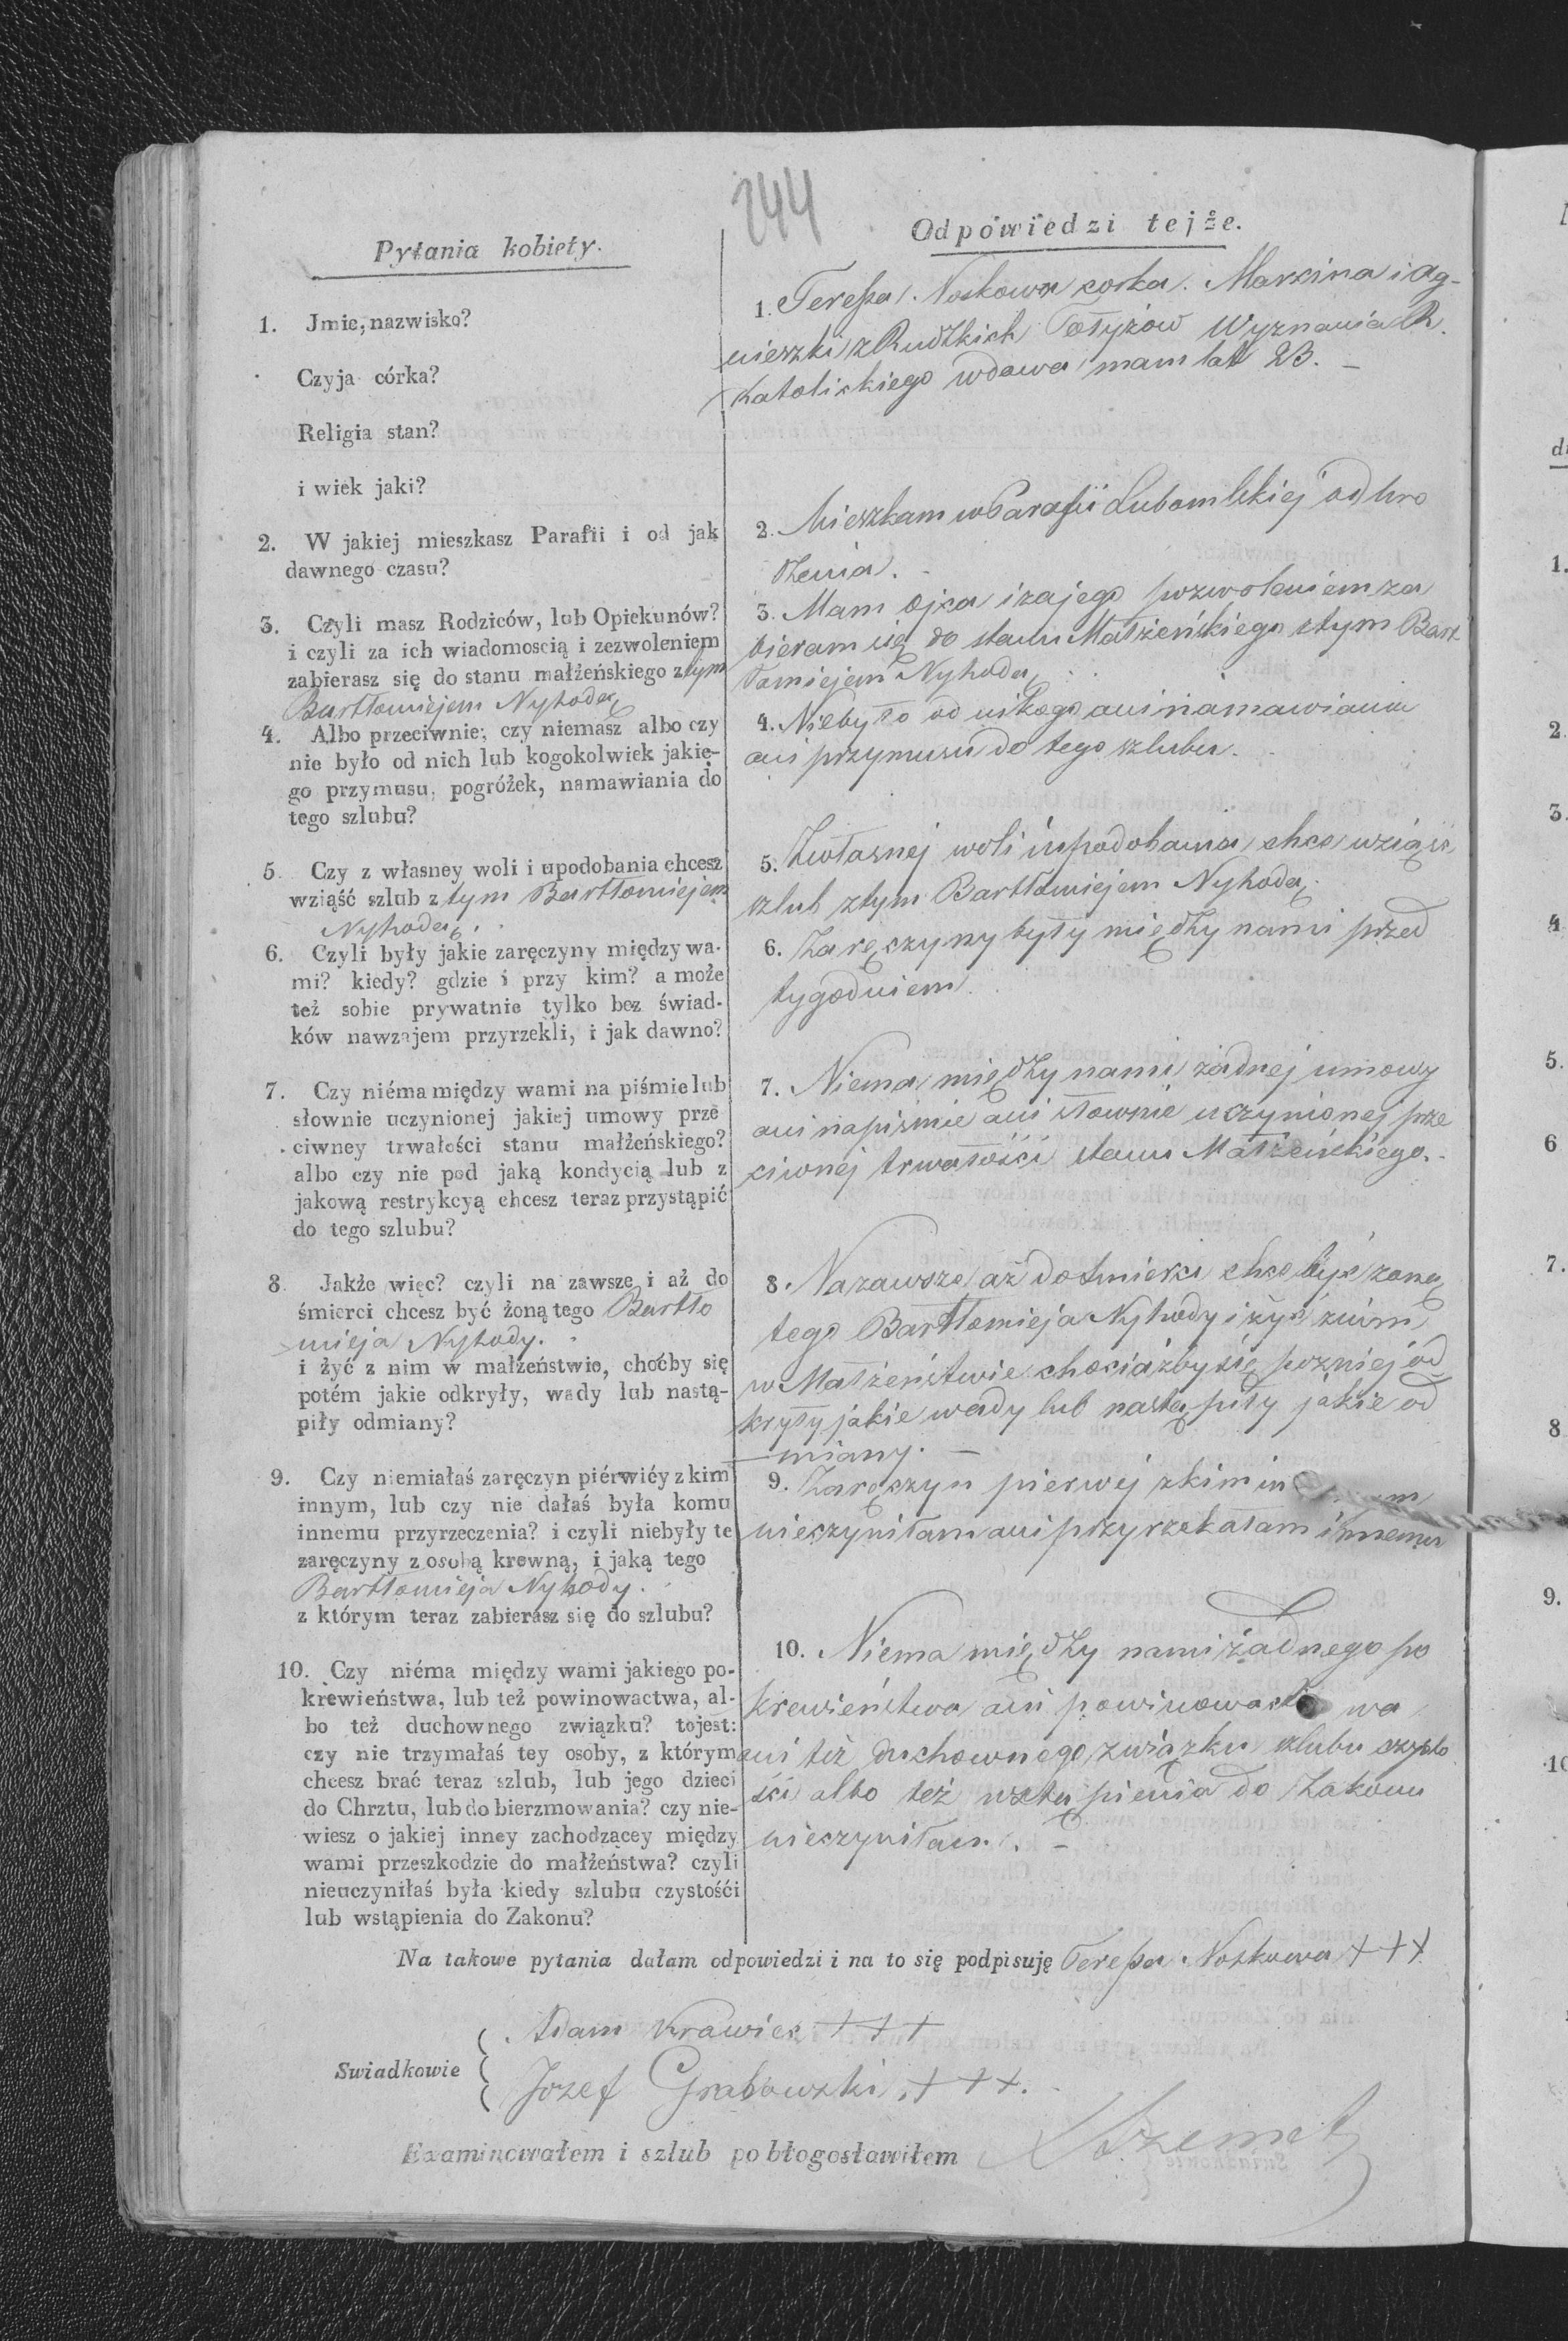 244
Pytania kobiety.
1. Jmie, nazwisko?
Czyja córka?
Religia stan?
i wiek jaki?
2. W jakiej mieszkasz Parafii i od jak
dawnego czasu?
3. Czyli masz Rodziców, lub Opiekunów?
i czyli za ich wiadomoscią i zezwoleniem
zabierasz się do stanu małżeńskiego z tym
Bartłomiejem Nyhodą
4. Albo przeciwnie; czy niemasz albo czy
nie było od nich lub kogokolwiek jakie-
go przymusu, pogróżek, namawiania do
tego szlubu?
5. Czy z własney woli i upodobania chcesz
wziąść szlub z tym Bartłomiejem
Nyhodą.
6. Czyli były jakie zaręczyny między wa-
mi? kiedy? gdzie i przy kim? a może
też sobie prywatnie tylko bez świad-
ków nawzajem przyrzekli, i jak dawno?
7. Czy niéma między wami na piśmie lub
słownie uczynionej jakiej umowy prze
ciwney trwałości stanu małżeńskiego?
albo czy nie pod jaką kondycią lub z
jakową restrykcyą chcesz teraz przystąpić
do tego szlubu?
8. Jakże więc? czyli na zawsze i aż do
śmierci chcesz być żoną tego Bartło
mieja Nyhody.
i żyć z nim w małżeństwie, choćby się
potém jakie odkryły, wady lub nastą-
piły odmiany?
9. Czy niemiałaś zaręczyn piérwiéy z kim
innym, lub czy nie dałaś była komu
innemu przyrzeczenia? i czyli niebyły te
zaręczyny z osobą krewną, i jaką tego
Bartłomieja Nyhody.
z którym teraz zabierasz się do szlubu?
10. Czy niéma między wami jakiego po-
krewieństwa, lub też powinowactwa, al-
bo też duchownego związku? tojest:
czy nie trzymałaś tey osoby, z którym
chcesz brać teraz szlub, lub jego dzieci
do Chrztu, lub do bierzmowania? czy nie-
wiesz o jakiej inney zachodzącey między
wami przeszkodzie do małżeństwa? czyli
nieuczyniłaś była kiedy szlubu czystośći
lub wstąpienia do Zakonu?
Odpowiedzi tejże.
1. Teressa Noskowa corka Marcina i Ag-
nieszki z Rudzkich Wyznania R.
Katolickiego wdowa mam lat 23. –
2. Mieszkam w Parafii Lubomlskiej od uro
dzenia. –
3. Mam ojca i zajego pozwoleniem za
bieram się do stanu Małżeńskiego z tym Bart
łomiejem Nyhodą
4. Niebyło od nikogo ani namawiania
ani przymusu do tego szlubu.
5. Zwłasnej woli i upodobania chce wziąść
szlub ztym Bartłomiejem Nyhodą.
6. Zaręczyny były między nami przed
tygodniem
7. Niema między nami żadnej umowy
ani napismie ani słownie uczynionej prze
ciwnej trwałości stanu Małżeńskiego.
8. Nazawsze aż do smierci chce być żoną
tego Bartłomieja Nyhody i żyć znim
w Małżeństwie chociażby się pozniej od
kryły jakie wady lub nastąpiły jakie od
miany. –
9. Zaręczyn pierwej zkim
nieczyniłam ani przyrzekałam innemu
10. Niema między nami żadnego po
krewieństwa ani powinowact wa
ani też duchownego związku szlubu czysto
ści albo też wstąpienia do Zakonu
nieczyniłam. –
Na takowe pytania dałam odpowiedzi i na to się podpisuję Teressa Noskowa +++
Swiadkowie
Adam Krawiec +++
Jozef Grabowski +++.
Examinowałem i szlub pobłogosławiłem